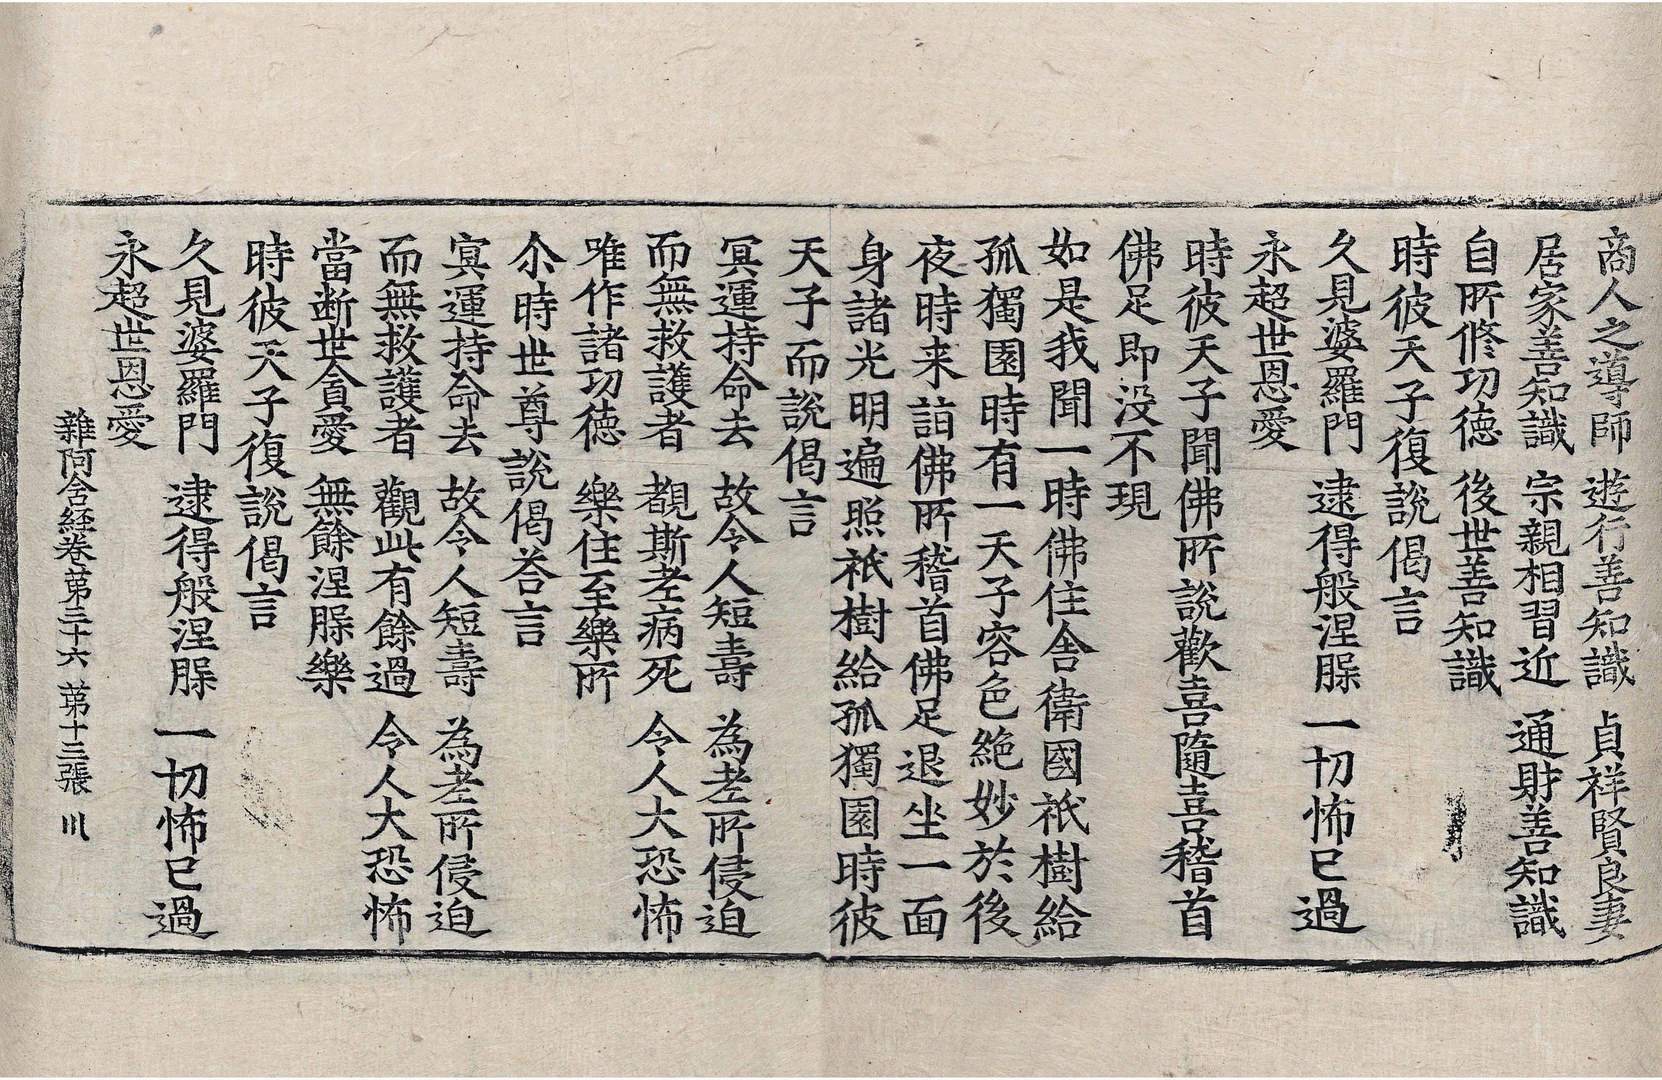 商人之導師　遊行善知識　貞祥賢良妻
居家善知識　宗親相習近　通財善知識
自所修功德　後世善知識
時彼天子復說偈言
久見婆羅門　逮得般涅槃　一切怖已過
永超世恩愛
時彼天子聞佛所說歡喜隨喜稽首
佛足即没不現
如是我聞一時佛住舍衛國祇樹給
孤獨園時有一天子容色絶妙於後
夜時来詣佛所稽首佛足退坐一面
身諸光明遍照祇樹給孤獨園時彼
天子而說偈言
冥運持命去　故令人短壽　為老所侵迫
而無救護者　覩斯老病死　令人大恐怖
唯作諸功德　樂住至樂所
尒時世尊說偈荅言
冥運持命去　故令人短壽　為老所侵迫
而無救護者　觀此有餘過　令人大恐怖
當断世貪愛　無餘涅槃樂
時彼天子復說偈言
久見婆羅門　逮得般涅槃　一切怖已過
永超世恩愛
雜阿含経卷第三十六　第十三張　川